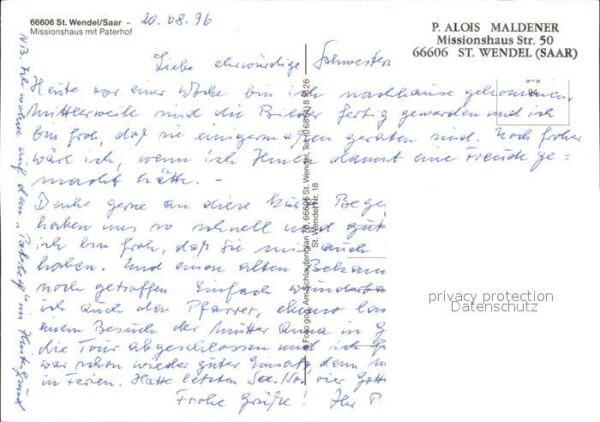 66606 St. Wendel/Saar - 20.08.96
Missionshaus mit Paterhof
P. ALOIS MALDENER
Missionshaus Str. 50
66606 ST. WENDEL (SAAR)
Liebe ehrwürdige Schwestern
Heute vor einer Woche bin ich nachhause gekommen.
Mittlerweile sind die Bilder fertig geworden und ich
bin froh, daß sie einigermaßen geraten sind. Noch froher
wäre ich, wenn ich Ihnen damit eine Freude ge=
macht hätte. -
Denke gerne an diese Bege
haben uns so schnell und gut
ich bin froh, daß Sie mir auch
haben. Und einen alten Bekann
noch getroffen. Einfach wunderba
ich auch den Pfarrer, ebenso
einem Besuch der Mutter Anna in G
die Tour abgeschlossen und ich
war schon wieder guter Einsatz, denn
in Ferien. Hatte letzten vier Gott
Frohe Grüße! Ihr P.
NB. Ich wohne auf dem "Paterberg" im Hintergrund
66606 St. Wendel, Tel.
St. Wendel Nr. 18
privacy protection
Datenschutz